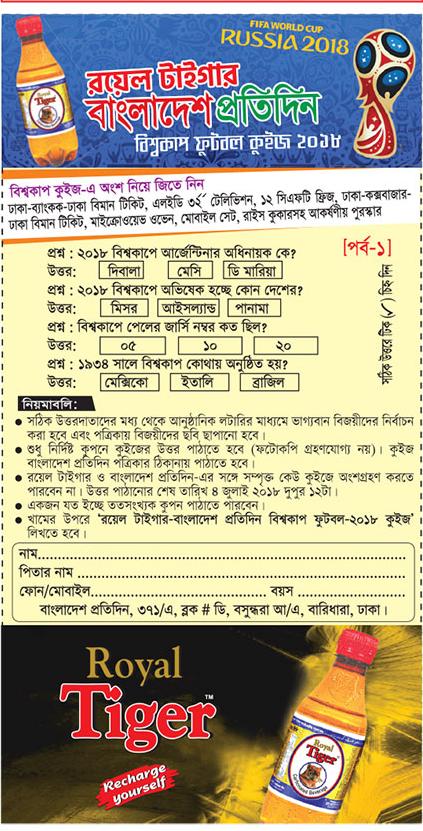 FIFA WORLD CUP
RUSSIA 2018
Royal
Tiger
রয়েল টাইগার
বাংলাদেশ প্রতিদিন
বিশ্বকাপ ফুটবল কুইজ ২০১৮
বিশ্বকাপ কুইজ-এ অংশ নিয়ে জিতে নিন
ঢাকা-ব্যাংকক-ঢাকা বিমান টিকিট, এলইডি ৩২" টেলিভিশন, ১২ সিএফটি ফ্রিজ, ঢাকা-কক্সবাজার-
ঢাকা বিমান টিকিট, মাইক্রোওয়েভ ওভেন, মোবাইল সেট, রাইস কুকারসহ আকর্ষণীয় পুরস্কার
[পর্ব-১]
প্রশ্ন : ২০১৮ বিশ্বকাপে আর্জেন্টিনার অধিনায়ক কে?
উত্তর: দিবালা মেসি ডি মারিয়া
প্রশ্ন : ২০১৮ বিশ্বকাপে অভিষেক হচ্ছে কোন দেশের?
উত্তর: মিসর আইসল্যান্ড পানামা
প্রশ্ন : বিশ্বকাপে পেলের জার্সি নম্বর কত ছিল?
উত্তর: ০৫ ১০ ২০
প্রশ্ন : ১৯৩৪ সালে বিশ্বকাপ কোথায় অনুষ্ঠিত হয়?
উত্তর: মেক্সিকো ইতালি ব্রাজিল
সঠিক উত্তরে টিক (✓) চিহ্ন দিন
নিয়মাবলি:
● সঠিক উত্তরদাতাদের মধ্য থেকে আনুষ্ঠানিক লটারির মাধ্যমে ভাগ্যবান বিজয়ীদের নির্বাচন
করা হবে এবং পত্রিকায় বিজয়ীদের ছবি ছাপানো হবে।
● শুধু নির্দিষ্ট কুপনে কুইজের উত্তর পাঠাতে হবে (ফটোকপি গ্রহণযোগ্য নয়)। কুইজ
বাংলাদেশ প্রতিদিন পত্রিকার ঠিকানায় পাঠাতে হবে।
● রয়েল টাইগার ও বাংলাদেশ প্রতিদিন-এর সঙ্গে সম্পৃক্ত কেউ কুইজে অংশগ্রহণ করতে
পারবেন না। উত্তর পাঠানোর শেষ তারিখ ৪ জুলাই ২০১৮ দুপুর ১২টা।
● একজন যত ইচ্ছে ততসংখ্যক কুপন পাঠাতে পারবেন।
● খামের উপরে 'রয়েল টাইগার-বাংলাদেশ প্রতিদিন বিশ্বকাপ ফুটবল-২০১৮ কুইজ'
লিখতে হবে।
নাম
পিতার নাম
ফোন/মোবাইল বয়স
বাংলাদেশ প্রতিদিন, ৩৭১/এ, ব্লক # ডি, বসুন্ধরা আ/এ, বারিধারা, ঢাকা।
Royal
Tiger™
Recharge
yourself
Royal
Tiger
Carbonated Beverage